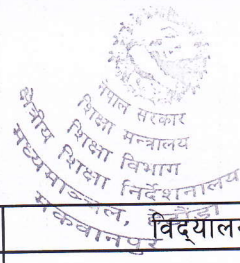 नेपाल सरकार
शिक्षा मन्त्रालय
शिक्षा विभाग
क्षेत्रीय शिक्षा निर्देशनालय
मध्यमाञ्चल, हेटौंडा
मकवानपुर
विद्याल